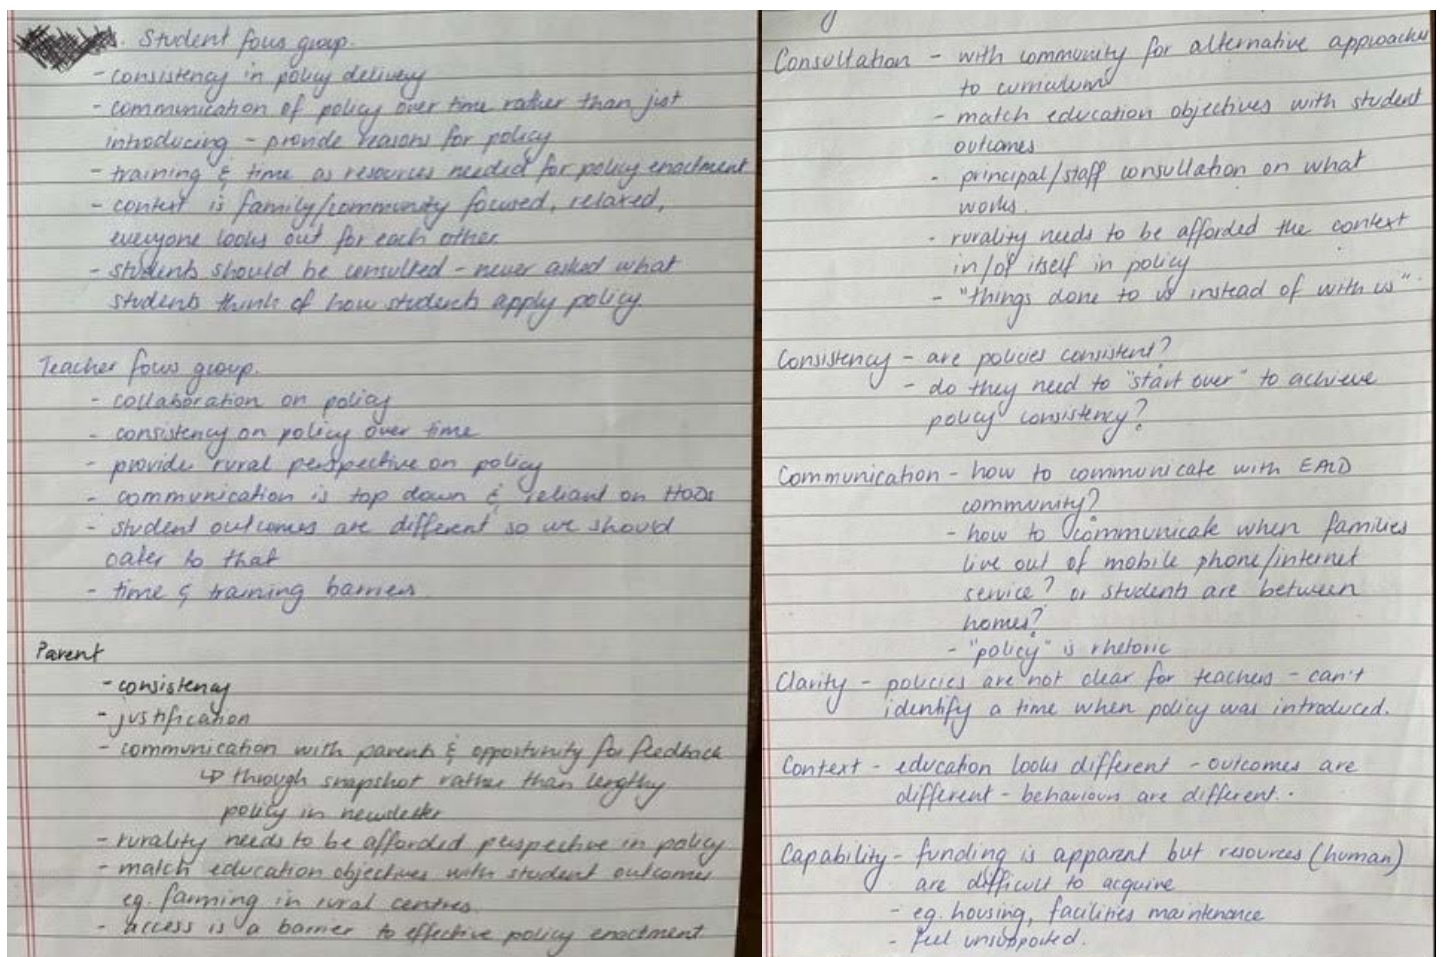 Student focus group.
- consistency in policy delivery
- communication of policy over time rather than just
introducing - provide reasons for policy
- training & time as resources needed for policy enactment
- context is family/community focused, relaxed,
everyone looks out for each other
- students should be consulted - never asked what
students think of how students apply policy.
Teacher focus group.
- collaboration on policy
- consistency on policy over time
- provide rural perspective on policy
- communication is top down & reliant on HoDs
- student outcomes are different so we should
cater to that
- time & training barriers.
Parent
- consistency
- justification
- communication with parents & opportunity for feedback
↳ through snapshot rather than lengthy
policy in newsletter
- rurality needs to be afforded perspective in policy
- match education objectives with student outcomes
eg. farming in rural centres.
- access is a barrier to effective policy enactment.
Consultation - with community for alternative approaches
to curriculum
- match education objectives with student
outcomes
- principal/staff consultation on what
works.
- rurality needs to be afforded the context
in/of itself in policy
- "things done to us instead of with us".
Consistency - are policies consistent?
- do they need to "start over" to achieve
policy consistency?
Communication - how to communicate with EALD
community?
- how to communicate when families
live out of mobile phone/internet
service? or students are between
homes?
- "policy" is rhetoric
Clarity - policies are not clear for teachers - can't
identify a time when policy was introduced.
Context - education looks different - outcomes are
different - behaviours are different.
Capability - funding is apparent but resources (human)
are difficult to acquire
- eg. housing, facilities maintenance
- feel unsupported.